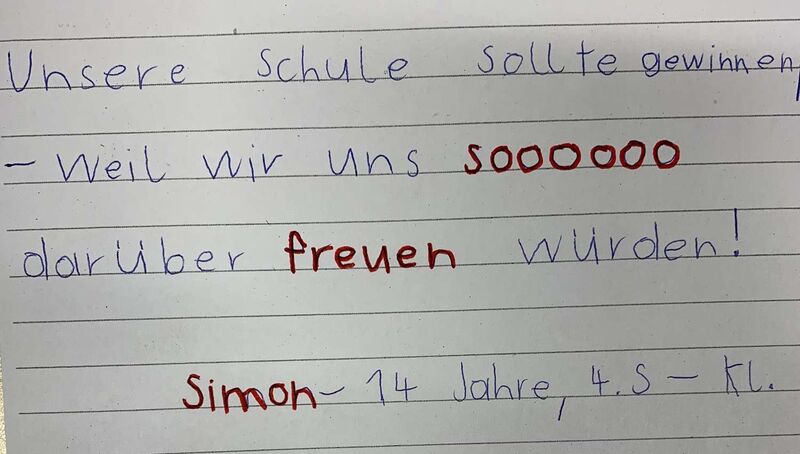 Unsere Schule sollte gewinnen,
- Weil wir uns soooooo
darüber freuen würden!
Simon- 14 Jahre, 4.S - Kl.